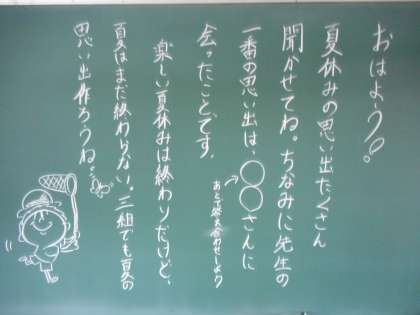 おはよう！
夏休みの思い出たくさん
聞かせてね。ちなみに先生の
一番の思い出は、○○さんに
あとで答え合わせしよう
会ったことです。
楽しい夏休みは終わりだけど、
夏はまだ終わらない。二組でも夏の
思い出作ろうね